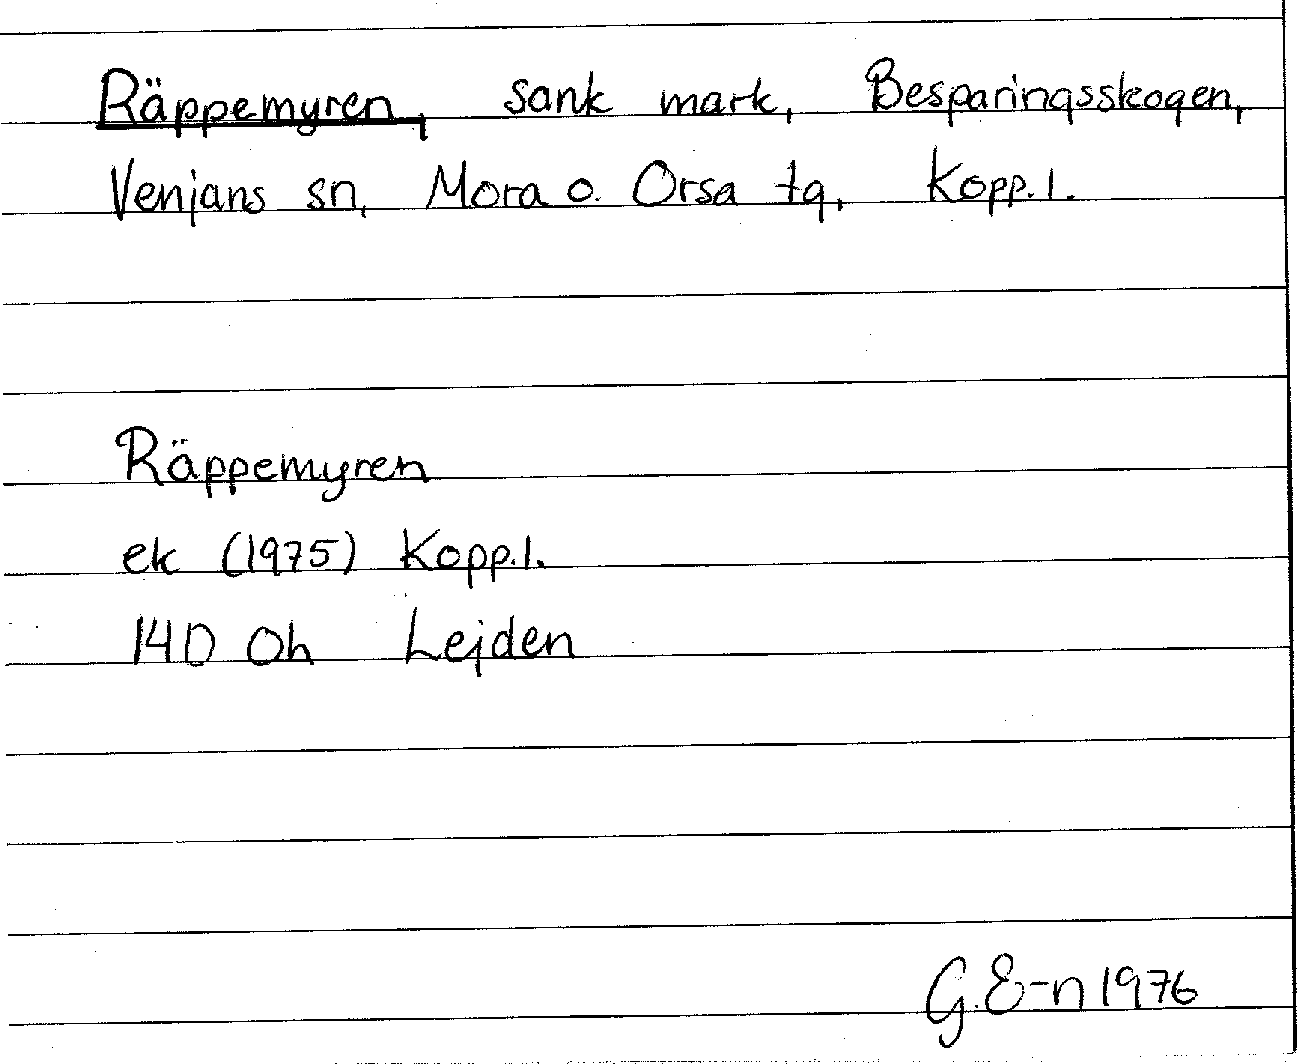 Räppemyren, sank mark, Besparingsskogen,
Venjans sn, Mora o. Orsa tg, Kopp.l.
Räppemyren
ek (1975) Kopp.l.
14D 0h Lejden
G.E-n 1976